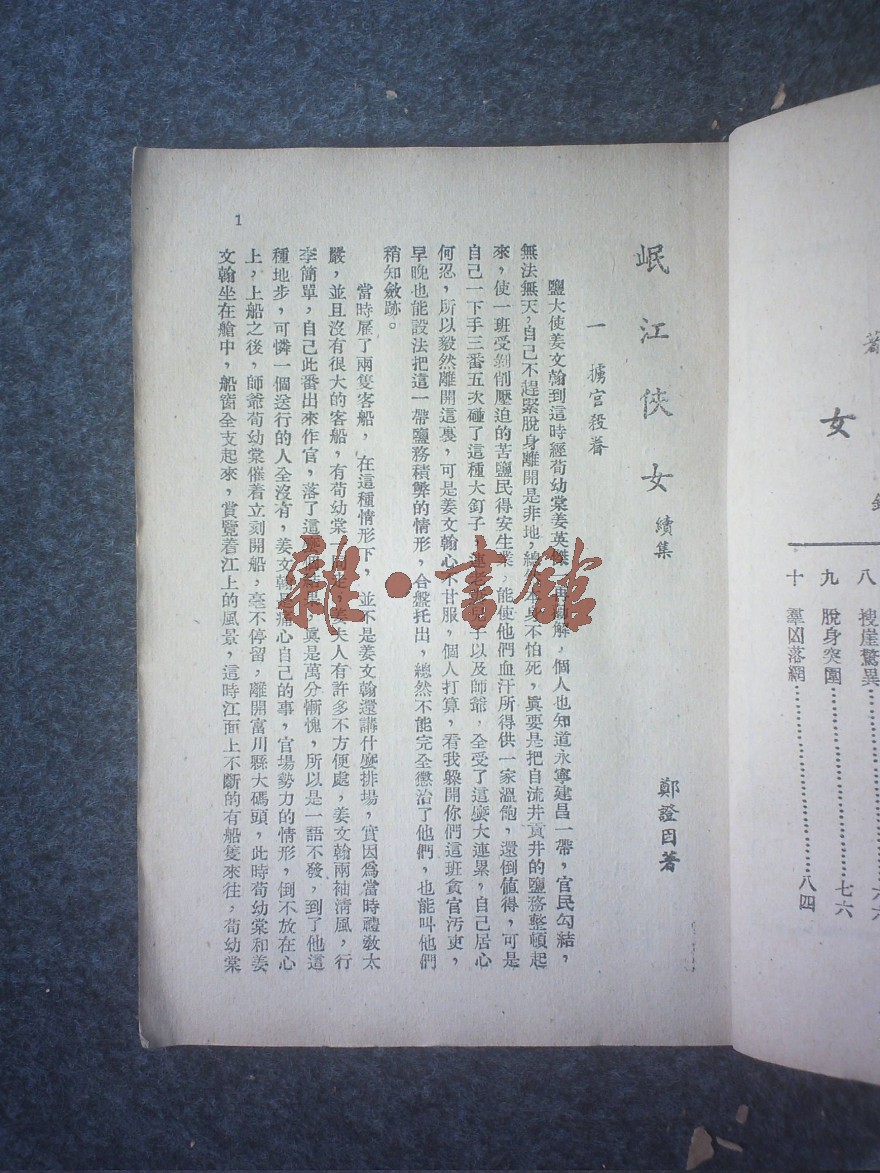 著
女
八 搜崖驚異
九 脫身突圍⋯⋯⋯⋯七六
十 羣凶落網⋯⋯⋯⋯八四
岷江俠女 續集
鄭證因著
一 擄官殺眷
鹽大使姜文翰到這時經荀幼棠姜英傑解,個人也知道永寧建昌一帶,官民勾結,
無法無天,自己不趕緊脫身離開是非地,總本身不怕死,眞要是把自流井貢井的鹽務整頓起
來,使一班受剝削壓迫的苦鹽民得安生業,能使他們血汗所得供一家溫飽,還倒値得,可是
自己一下手三番五次碰了這種大釘子,連老妻兒子以及師爺,全受了這麼大連累,自己居心
何忍,所以毅然離開這裏,可是姜文翰心不甘服,個人打算,看我躱開你們這班貪官汚吏,
早晚也能設法把這一帶鹽務積弊的情形,合盤托出,總然不能完全懲治了他們,也能叫他們
稍知斂跡。
當時雇了兩隻客船,在這種情形下,並不是姜文翰還講什麼排場,實因爲當時禮敎太
嚴,並且沒有很大的客船,有荀幼棠一同走,姜夫人有許多不方便處,姜文翰兩袖淸風,行
李簡單,自己此番出來作官,落了這麼個結果,眞是萬分慚愧,所以是一語不發,到了他這
種地步,可憐一個送行的人全沒有,姜文翰是痛心自己的事,官場勢力的情形,倒不放在心
上,上船之後,師爺荀幼棠催着立刻開船,毫不停留,離開富川縣大碼頭,此時荀幼棠和姜
文翰坐在艙中,船窗全支起來,賞覽着江上的風景,這時江面上不斷的有船隻來往,荀幼棠
1
雜·書館